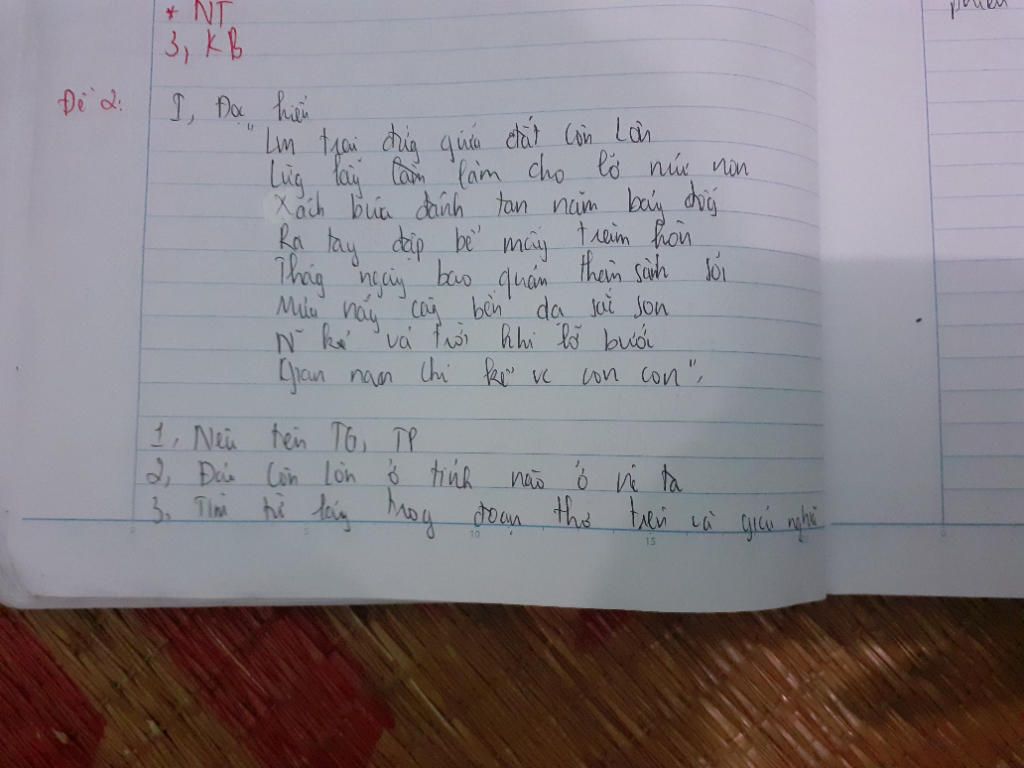 * NT
3, KB
Đề 2:
I, Đọc hiểu
"Làm trai đứg giữa đất Côn Lôn
Lừg lẫy làm cho lở núi non
Xách búa đánh tan năm bảy đốg
Ra tay đập bể mấy trăm hòn
Thág ngày bao quản thân sành sỏi
Mưa nắg càg bền dạ sắt son
N~ kẻ vá trời khi lỡ bước
Gian nan chi kể vc con con".
1, Nêu tên TG, TP
2, Đảo Côn Lôn ở tỉnh nào ở nc ta
3. Tìm từ láy trog đoạn thơ trên và giải nghĩ
5
10
15